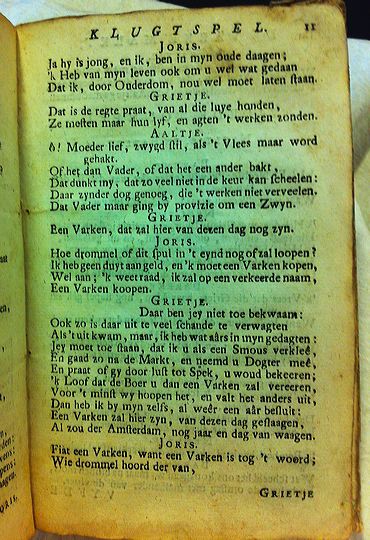 KLUGTSPEL. 11
JORIS.
Ja hy is jong, en ik, ben in myn oude daagen;
'k Heb van myn leven ook om u wel wat gedaan
Dat ik, door Ouderdom, nou wel moet laten staan.
GRIETJE.
Dat is de regte praat, van al die luye honden,
Ze mosten maar hun lyf, en agten 't werken zonden.
AALTJE.
ô! Moeder lief, zwygd stil, als 't Vlees maar word
gehakt.
Of het dan Vader, of dat het een ander bakt,
Dat dunkt my, dat zo veel niet in de keur kan scheelen:
Daar zynder dog genoeg, die 't werken niet verveelen.
Dat Vader maar ging by provizie om een Zwyn.
GRIETJE.
Een Varken, dat zal hier van dezen dag nog zyn.
JORIS.
Hoe drommel of dit spul in 't eynd nog of zal loopen?
Ik heb geen duyt aan geld, en 'k moet een Varken kopen,
Wel aan; 'k weet raad, ik zal op een verkeerde naam,
Een Varken koopen.
GRIETJE.
Daar ben jey niet toe bekwaam:
Ook zo is daar uit te veel schande te verwagten
Als 't uit kwam, maar, ik heb wat aârs in myn gedagten:
Jey moet toe staan, dat ik u als een Smous verkleê,
En gaad zo na de Markt, en neemd u Dogter meê,
En praat of gy door lust tot Spek, u woud bekeeren;
'k Loof dat de Boer u dan een Varken zal vereeren,
Voor 't minst wy hoopen het, en valt het anders uit,
Dan heb ik by myn zelfs, al weêr een aâr besluit:
Een Varken zal hier zyn, van dezen dag geslaagen,
Al zou der Amsterdam, nog jaar en dag van waagen.
JORIS.
Fiat een Varken, want een Varken is tog 't woord;
Wie drommel hoord der van,
GRIETJE